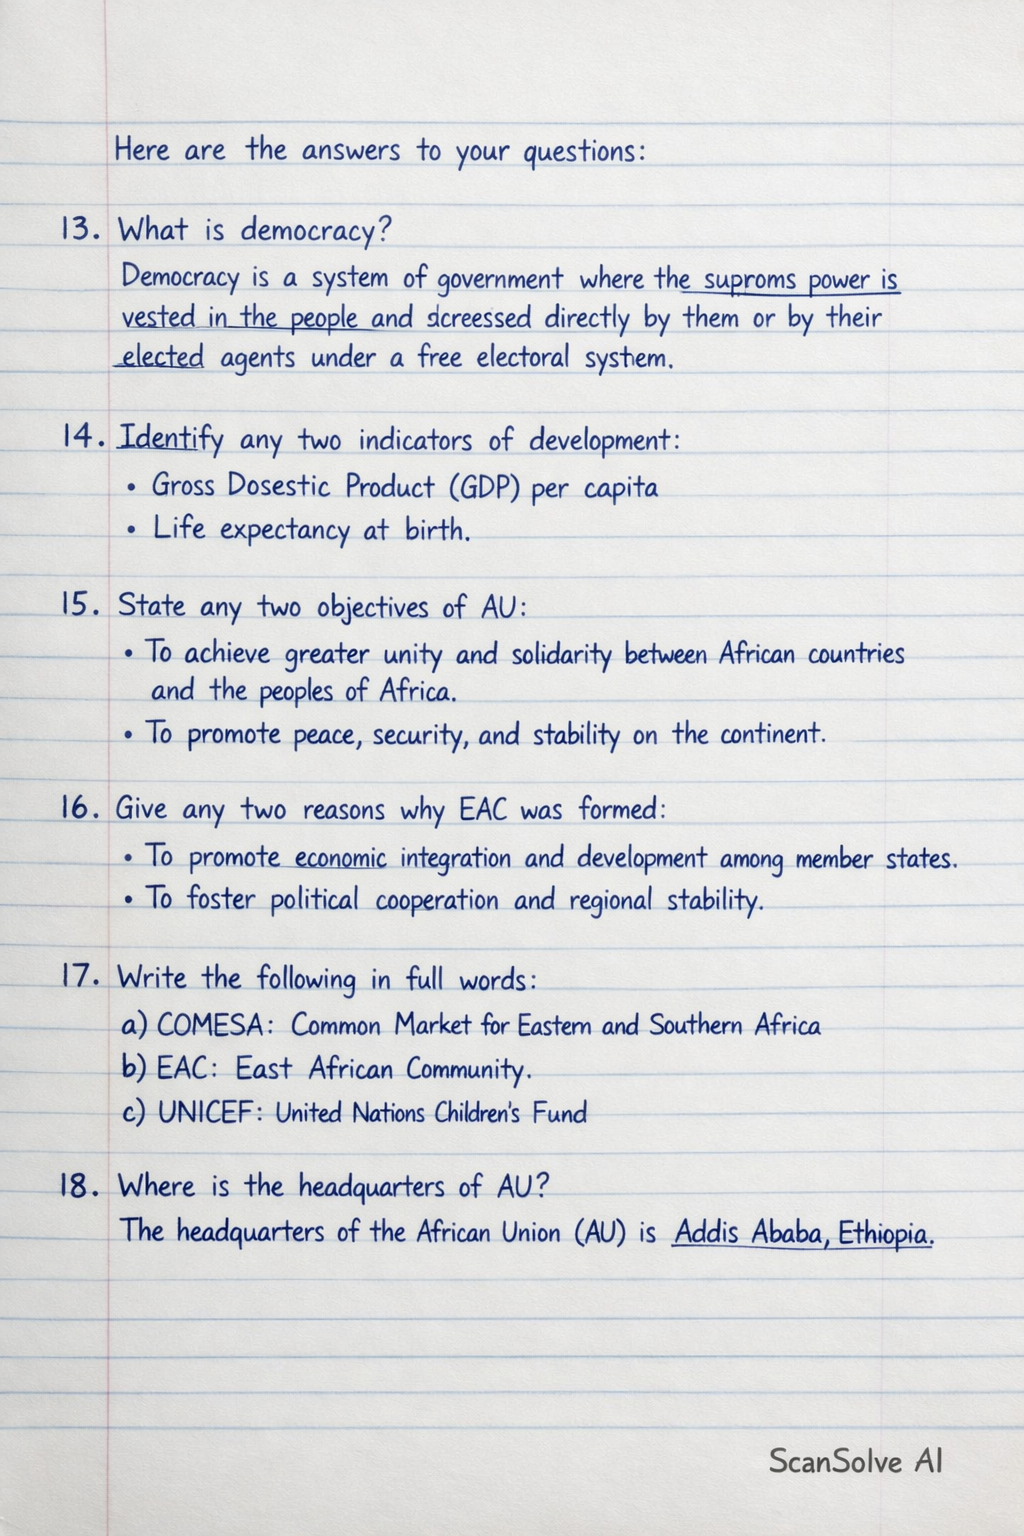 Here are the answers to your questions:
13. What is democracy?
Democracy is a system of government where the suproms power is
vested in the people and dcreessed directly by them or by their
elected agents under a free electoral system.
14. Identify any two indicators of development:
• Gross Dosestic Product (GDP) per capita
• Life expectancy at birth.
15. State any two objectives of AU:
• To achieve greater unity and solidarity between African countries
and the peoples of Africa.
• To promote peace, security, and stability on the continent.
16. Give any two reasons why EAC was formed:
• To promote economic integration and development among member states.
• To foster political cooperation and regional stability.
17. Write the following in full words:
a) COMESA: Common Market for Eastern and Southern Africa
b) EAC: East African Community.
c) UNICEF: United Nations Children's Fund
18. Where is the headquarters of AU?
The headquarters of the African Union (AU) is Addis Ababa, Ethiopia.
ScanSolve AI